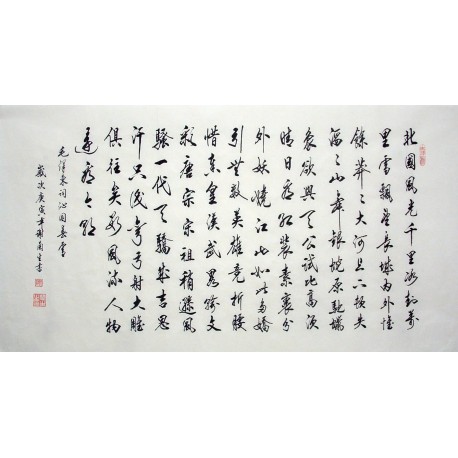 北國風光千里冰封萬
里雪飄望長城内外惟
餘莽々大河上下頓失
滔々山舞銀蛇原馳蠟
象欲與天公試比高須
晴日看紅裝素裹分
外妖嬈江山如此多嬌
引無數英雄競折腰
惜秦皇漢武略輸文
采唐宗宋祖稍遜風
騷一代天驕成吉思
汗只識彎弓射大雕
俱往矣數風流人物
還看今朝
毛澤東詞沁園春雪
歲次庚寅年謝生書